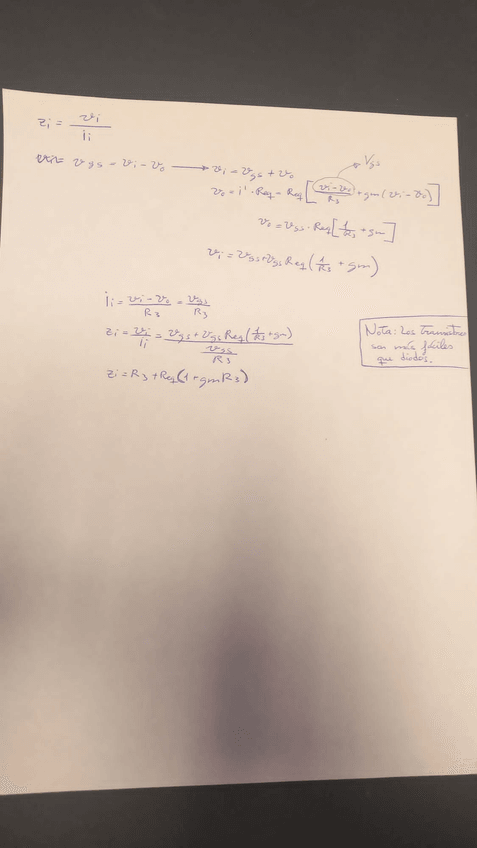 zi = vi / ii
vgs = vi - vo → vi = vgs + vo
Vgs
vo = i' · Req = Req [ (vi - vo) / R3 + gm (vi - vo) ]
vo = vgs · Req [ 1/R3 + gm ]
vi = vgs + vgs Req ( 1/R3 + gm )
ii = (vi - vo) / R3 = vgs / R3
zi = vi / ii = (vgs + vgs Req ( 1/R3 + gm )) / (vgs / R3)
zi = R3 + Req ( 1 + gm R3 )
Nota: Los
son más fáciles
que diodos.